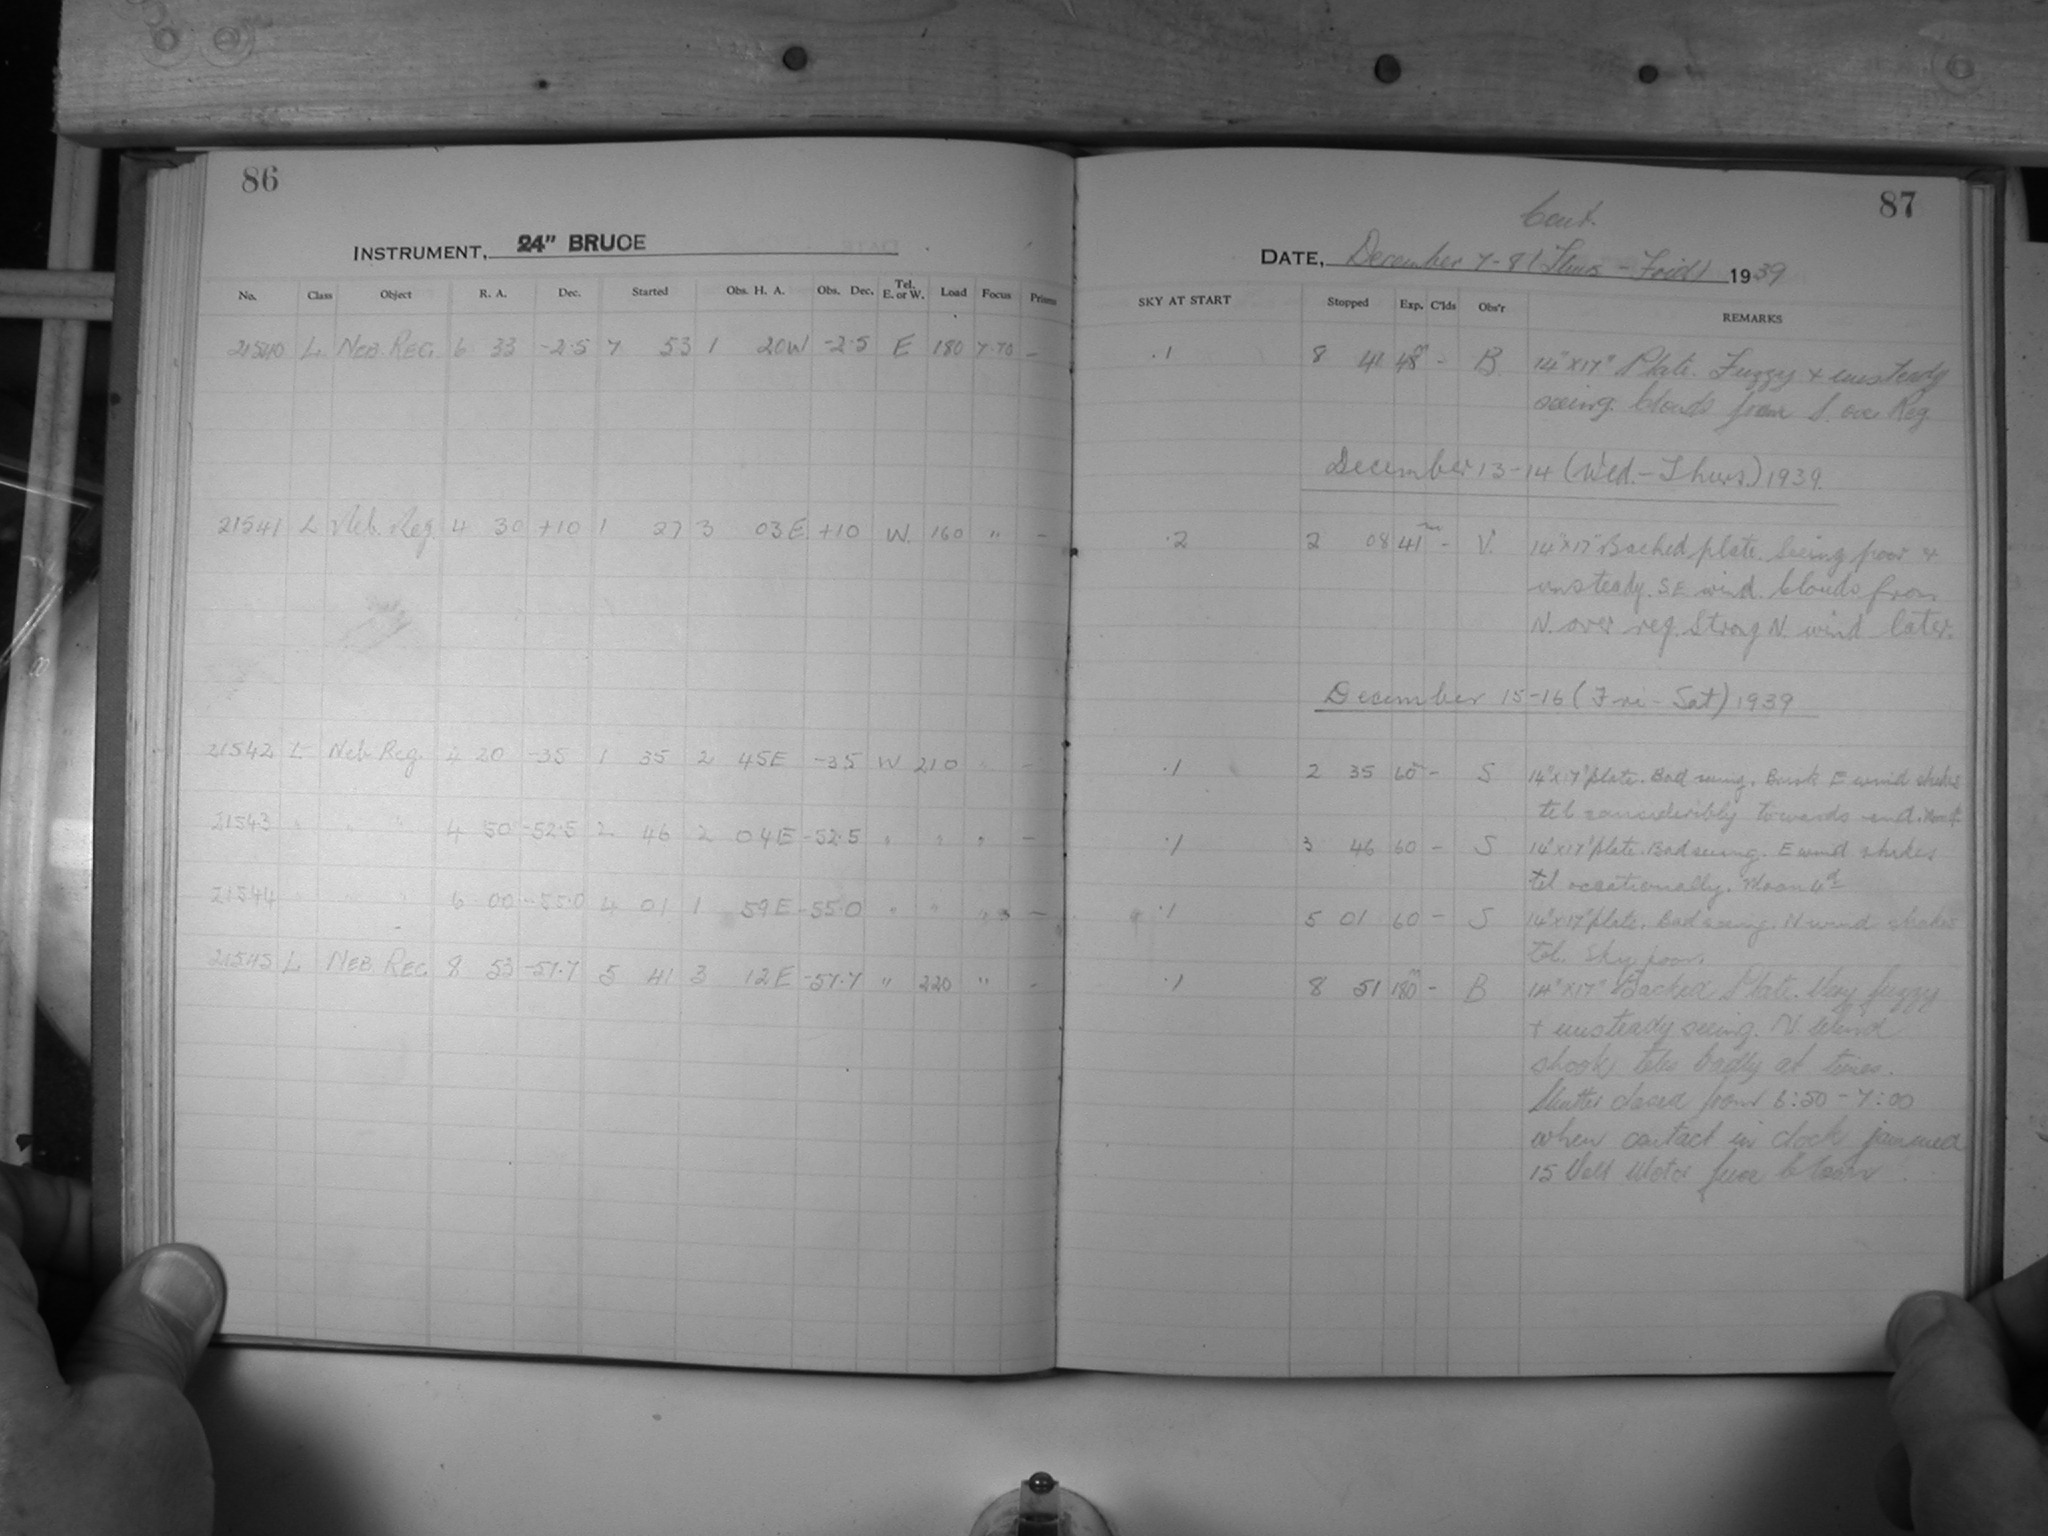 86
INSTRUMENT, 24" BRUCE
No. Class Object R. A. Dec. Started Obs. H. A. Obs. Dec. Tel. E. or W. Load Focus Prisms
21540 L NEB. REG. 6 33 -2.5 7 53 1 20W -2.5 E 180 7.70 -
21541 L Neb. Reg. 4 30 +10 1 27 3 03E +10 W. 160 " -
21542 L Neb. Reg. 4 20 -35 1 35 2 45E -35 W 210 " -
21543 " " " 4 50 -52.5 2 46 2 04E -52.5 " " " -
21544 " " " 6 00 -55.0 4 01 1 59E -55.0 " " " -
21545 L NEB. REG. 8 53 -57.7 5 41 3 12E -57.7 " 220 " -
87
Cont.
DATE, December 7-8 (Thurs - Frid) 1939
SKY AT START Stopped Exp. C'lds Obs'r REMARKS
.1 8 41 48m - B. 14"x17" Plate. Fuzzy + unsteady
seeing. Clouds from S. over Reg
December 13-14 (Wed.-Thurs.) 1939.
.2 2 08 41m - V. 14"x17" Backed plate. Seeing poor +
unsteady. SE wind. Clouds from
N. over reg. Strong N. wind later.
December 15-16 (Fri-Sat) 1939
.1 2 35 60m - S 14"x17" plate. Bad seeing. Brisk E wind shakes
tel consideribly towards end.
.1 3 46 60 - S 14"x17" plate. Bad seeing. E wind shakes
tel occationally. Moon 4d
.1 5 01 60 - S 14"x17" plate. Bad seeing. N wind shakes
tel. Sky poor.
.1 8 51 180m - B 14"x17" Backed Plate. Very fuzzy
+ unsteady seeing. N Wind
shook tele badly at times.
Shutter closed from 6:50 - 7:00
when contact in clock jammed
15 Volt Motor fuse